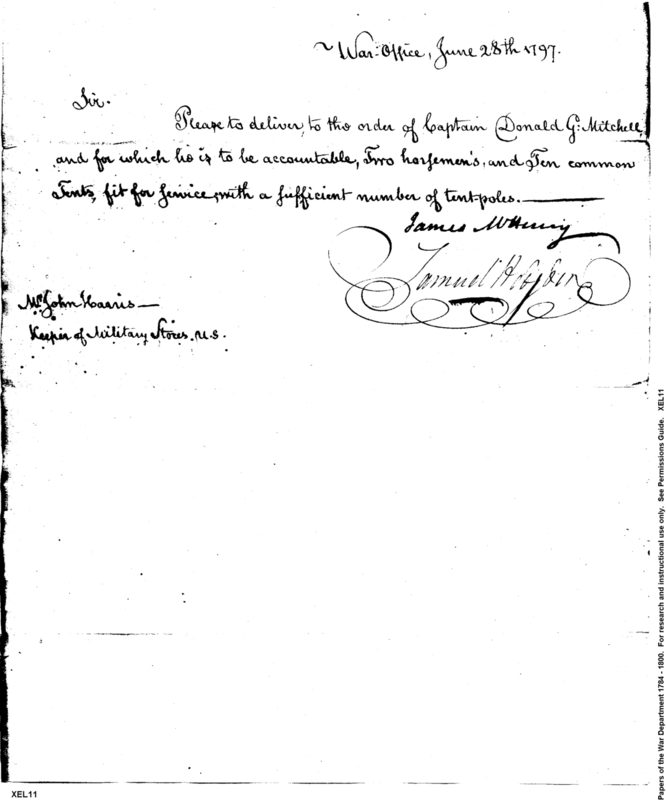 War-Office, June 28th 1797.
Sir.
Please to deliver, to the order of Captain Donald G. Mitchell,
and for which he is to be accountable, Two horsemen's, and Ten common
Tents, fit for service, with a sufficient number of tent-poles.
James McHenry
Samuel Hodgdon
Mr. John Harris
Keeper of Military Stores. U.S.
Papers of the War Department 1784 - 1800. For research and instructional use only. See Permissions Guide. XEL11
XEL11